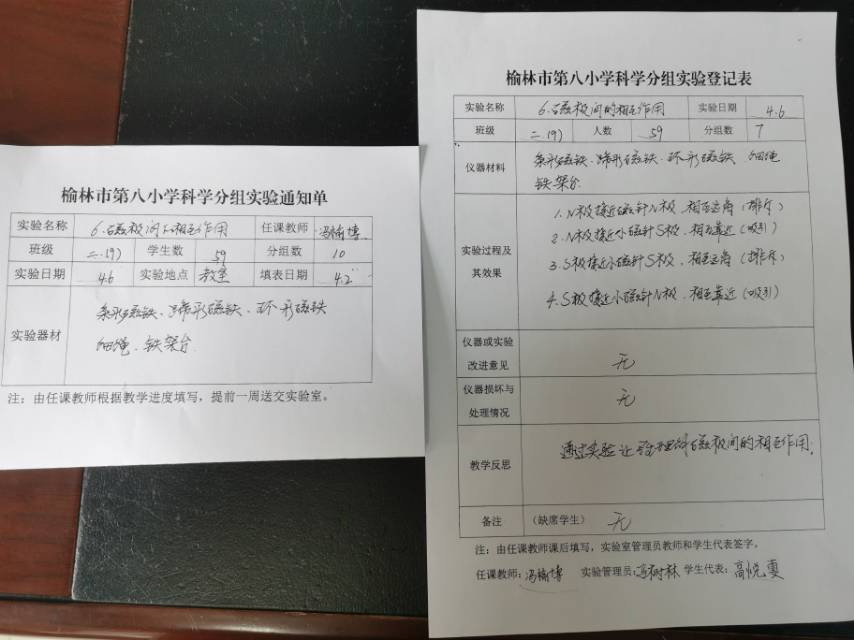 榆林市第八小学科学分组实验通知单
实验名称 6.磁极间的相互作用 任课教师 冯榆博
班级 二.(9) 学生数 59 分组数 10
实验日期 4.6 实验地点 教室 填表日期 4.2
实验器材 条形磁铁、蹄形磁铁、环形磁铁
细绳、铁架台
注：由任课教师根据教学进度填写，提前一周送交实验室。
榆林市第八小学科学分组实验登记表
实验名称 6.磁极间的相互作用 实验日期 4.6
班级 二.(9) 人数 59 分组数 7
仪器材料 条形磁铁、蹄形磁铁、环形磁铁 细绳
铁架台
实验过程及其效果
1.N极接近磁针N极、相互远离(排斥)
2.N极接近小磁针S极、相互靠近(吸引)
3.S极接近小磁针S极、相互远离(排斥)
4.S极接近小磁针N极、相互靠近(吸引)
仪器或实验
改进意见 无
仪器损坏与
处理情况 无
教学反思 通过实验让理解磁极间的相互作用.
备注 (缺席学生) 无
注：由任课教师课后填写，实验室管理员教师和学生代表签字。
任课教师：冯榆博 实验管理员：树林 学生代表：高悦